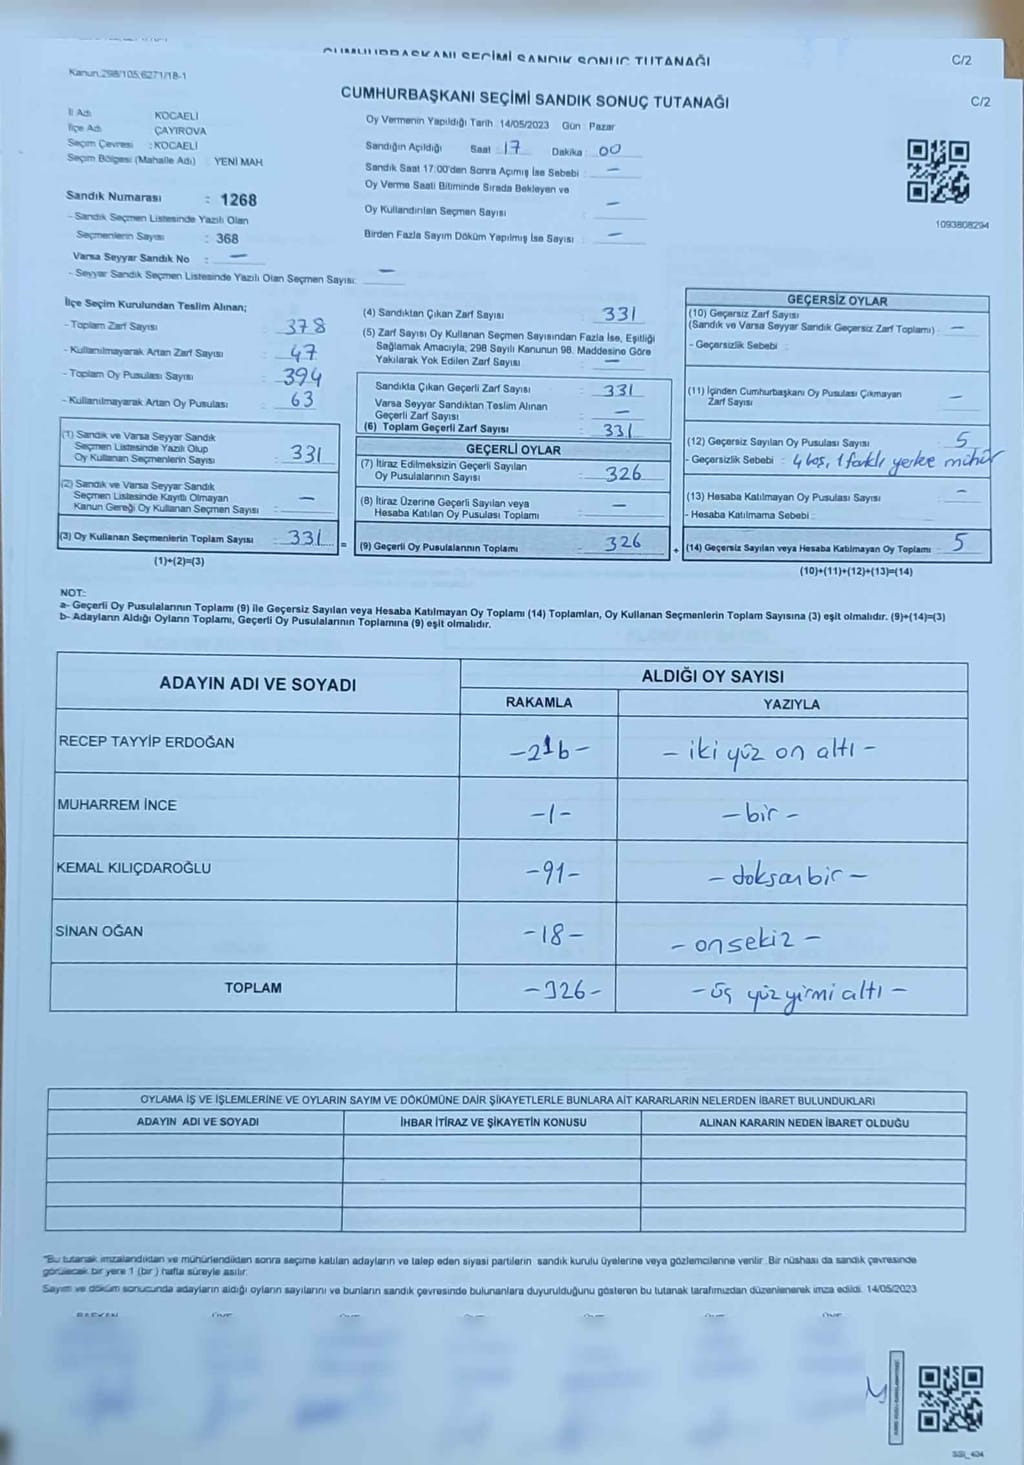 CUMHURBAŞKANI SEÇİMİ SANDIK SONUÇ TUTANAĞI
C/2
Kanun:298/105,6271/18-1
CUMHURBAŞKANI SEÇİMİ SANDIK SONUÇ TUTANAĞI
C/2
İl Adı KOCAELİ
İlçe Adı ÇAYIROVA
Seçim Çevresi : KOCAELİ
Seçim Bölgesi (Mahalle Adı) YENİ MAH
Oy Vermenin Yapıldığı Tarih :14/05/2023 Gün : Pazar
Sandığın Açıldığı Saat : 17 Dakika : 00
Sandık Saat 17.00'den Sonra Açımış İse Sebebi : —
Oy Verme Saati Bitiminde Sırada Bekleyen ve
Oy Kullandırılan Seçmen Sayısı : —
Birden Fazla Sayım Döküm Yapılmış İse Sayısı : —
1093808294
Sandık Numarası : 1268
- Sandık Seçmen Listesinde Yazılı Olan
Seçmenlerin Sayısı : 368
Varsa Seyyar Sandık No : —
- Seyyar Sandık Seçmen Listesinde Yazılı Olan Seçmen Sayısı: —
İlçe Seçim Kurulundan Teslim Alınan;
- Toplam Zarf Sayısı : 378
- Kullanılmayarak Artan Zarf Sayısı : 47
- Toplam Oy Pusulası Sayısı : 394
- Kullanılmayarak Artan Oy Pusulası : 63
(1) Sandık ve Varsa Seyyar Sandık
Seçmen Listesinde Yazılı Olup
Oy Kullanan Seçmenlerin Sayısı : 331
(2) Sandık ve Varsa Seyyar Sandık
Seçmen Listesinde Kayıtlı Olmayan
Kanun Gereği Oy Kullanan Seçmen Sayısı : —
(3) Oy Kullanan Seçmenlerin Toplam Sayısı : 331 =
(1)+(2)=(3)
(4) Sandıktan Çıkan Zarf Sayısı : 331
(5) Zarf Sayısı Oy Kullanan Seçmen Sayısından Fazla İse, Eşitliği
Sağlamak Amacıyla, 298 Sayılı Kanunun 98. Maddesine Göre
Yakılarak Yok Edilen Zarf Sayısı : —
Sandıkta Çıkan Geçerli Zarf Sayısı : 331
Varsa Seyyar Sandıktan Teslim Alınan
Geçerli Zarf Sayısı : —
(6) Toplam Geçerli Zarf Sayısı : 331
GEÇERLİ OYLAR
(7) İtiraz Edilmeksizin Geçerli Sayılan
Oy Pusulalarının Sayısı : 326
(8) İtiraz Üzerine Geçerli Sayılan veya
Hesaba Katılan Oy Pusulası Toplamı : —
(9) Geçerli Oy Pusulalarının Toplamı : 326 +
GEÇERSİZ OYLAR
(10) Geçersiz Zarf Sayısı
(Sandık ve Varsa Seyyar Sandık Geçersiz Zarf Toplamı) : —
- Geçersizlik Sebebi :
(11) İçinden Cumhurbaşkanı Oy Pusulası Çıkmayan
Zarf Sayısı : —
(12) Geçersiz Sayılan Oy Pusulası Sayısı : 5
- Geçersizlik Sebebi : 4 boş, 1 farklı yerlere mühür
(13) Hesaba Katılmayan Oy Pusulası Sayısı : —
- Hesaba Katılmama Sebebi :
(14) Geçersiz Sayılan veya Hesaba Katılmayan Oy Toplamı : 5
(10)+(11)+(12)+(13)=(14)
NOT:
a- Geçerli Oy Pusulalarının Toplamı (9) ile Geçersiz Sayılan veya Hesaba Katılmayan Oy Toplamı (14) Toplamları, Oy Kullanan Seçmenlerin Toplam Sayısına (3) eşit olmalıdır. (9)+(14)=(3)
b- Adayların Aldığı Oyların Toplamı, Geçerli Oy Pusulalarının Toplamına (9) eşit olmalıdır.
ADAYIN ADI VE SOYADI ALDIĞI OY SAYISI
RAKAMLA YAZIYLA
RECEP TAYYİP ERDOĞAN -216- - iki yüz on altı -
MUHARREM İNCE -1- - bir -
KEMAL KILIÇDAROĞLU -91- - doksan bir -
SİNAN OĞAN -18- - on sekiz -
TOPLAM -326- - üç yüz yirmi altı -
OYLAMA İŞ VE İŞLEMLERİNE VE OYLARIN SAYIM VE DÖKÜMÜNE DAİR ŞİKAYETLERLE BUNLARA AİT KARARLARIN NELERDEN İBARET BULUNDUKLARI
ADAYIN ADI VE SOYADI İHBAR İTİRAZ VE ŞİKAYETİN KONUSU ALINAN KARARIN NEDEN İBARET OLDUĞU
"Bu tutanak imzalandıktan ve mühürlendikten sonra seçime katılan adayların ve talep eden siyasi partilerin sandık kurulu üyelerine veya gözlemcilerine verilir. Bir nüshası da sandık çevresinde
görülecek bir yere 1 (bir) hafta süreyle asılır.
Sayım ve döküm sonucunda adayların aldığı oyların sayılarını ve bunların sandık çevresinde bulunanlara duyurulduğunu gösteren bu tutanak tarafımızdan düzenlenerek imza edildi. 14/05/2023
BAŞKAN ÜYE ÜYE ÜYE ÜYE ÜYE ÜYE